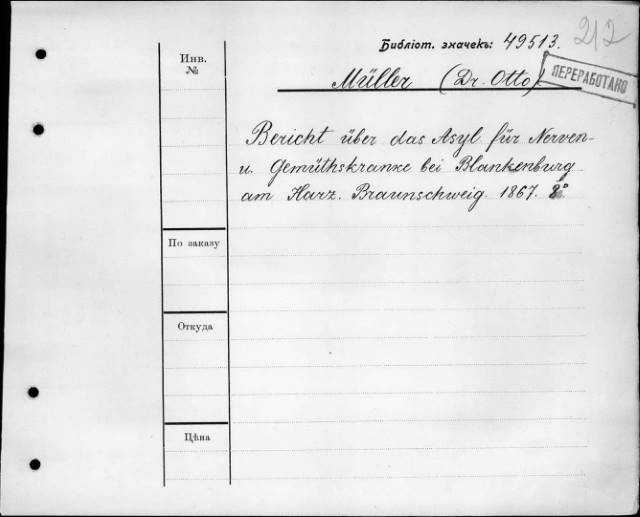 212
Библіот. значекъ: 49513.
ПЕРЕРАБОТАНО
Инв.
№
Müller (Dr. Otto).
Bericht über das Asyl für Nerven-
u. Gemüthskranke bei Blankenburg
am Harz. Braunschweig. 1867. 8°
По заказу
Откуда
Цѣна